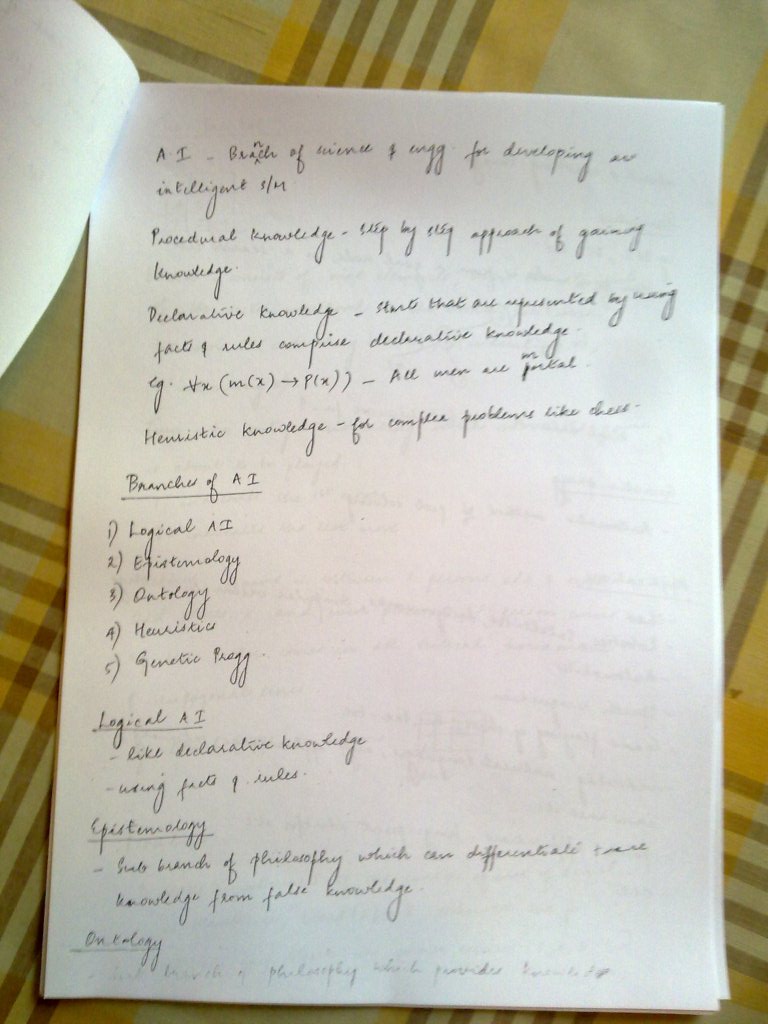 A.I - Branch of science & engg. for developing an
intelligent S/M
Procedural knowledge - step by step approach of gaining
knowledge.
Declarative knowledge - Stmts that are represented by using
facts & rules comprise declarative knowledge.
eg. ∀x (m(x) → P(x)) - All men are mortal.
Heuristic knowledge - for complex problems like chess.
Branches of AI
1) Logical AI
2) Epistemology
3) Ontology
4) Heuristics
5) Genetic Progg.
Logical AI
- like declarative knowledge
- using facts & rules.
Epistemology
- Sub branch of philosophy which can differentiate true
knowledge from false knowledge.
Ontology
- Sub branch of philosophy which provides